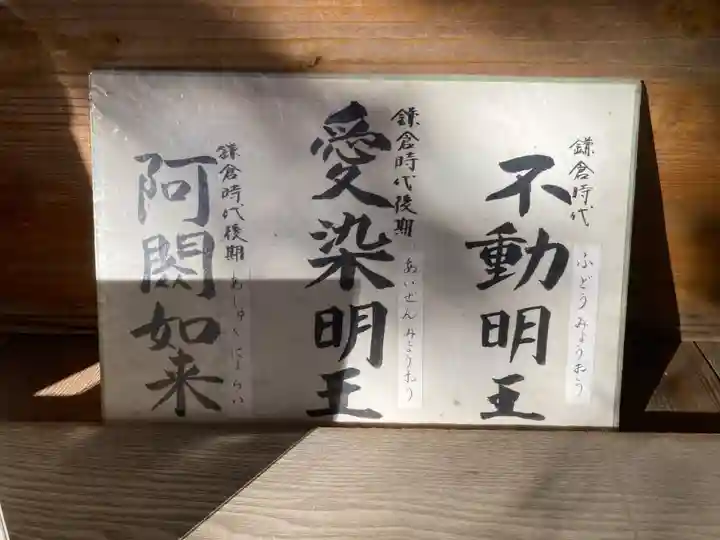 鎌倉時代
不動明王
ふどうみょうおう
鎌倉時代後期
愛染明王
あいぜんみょうおう
鎌倉時代後期
阿閦如来
あしゅくにょらい